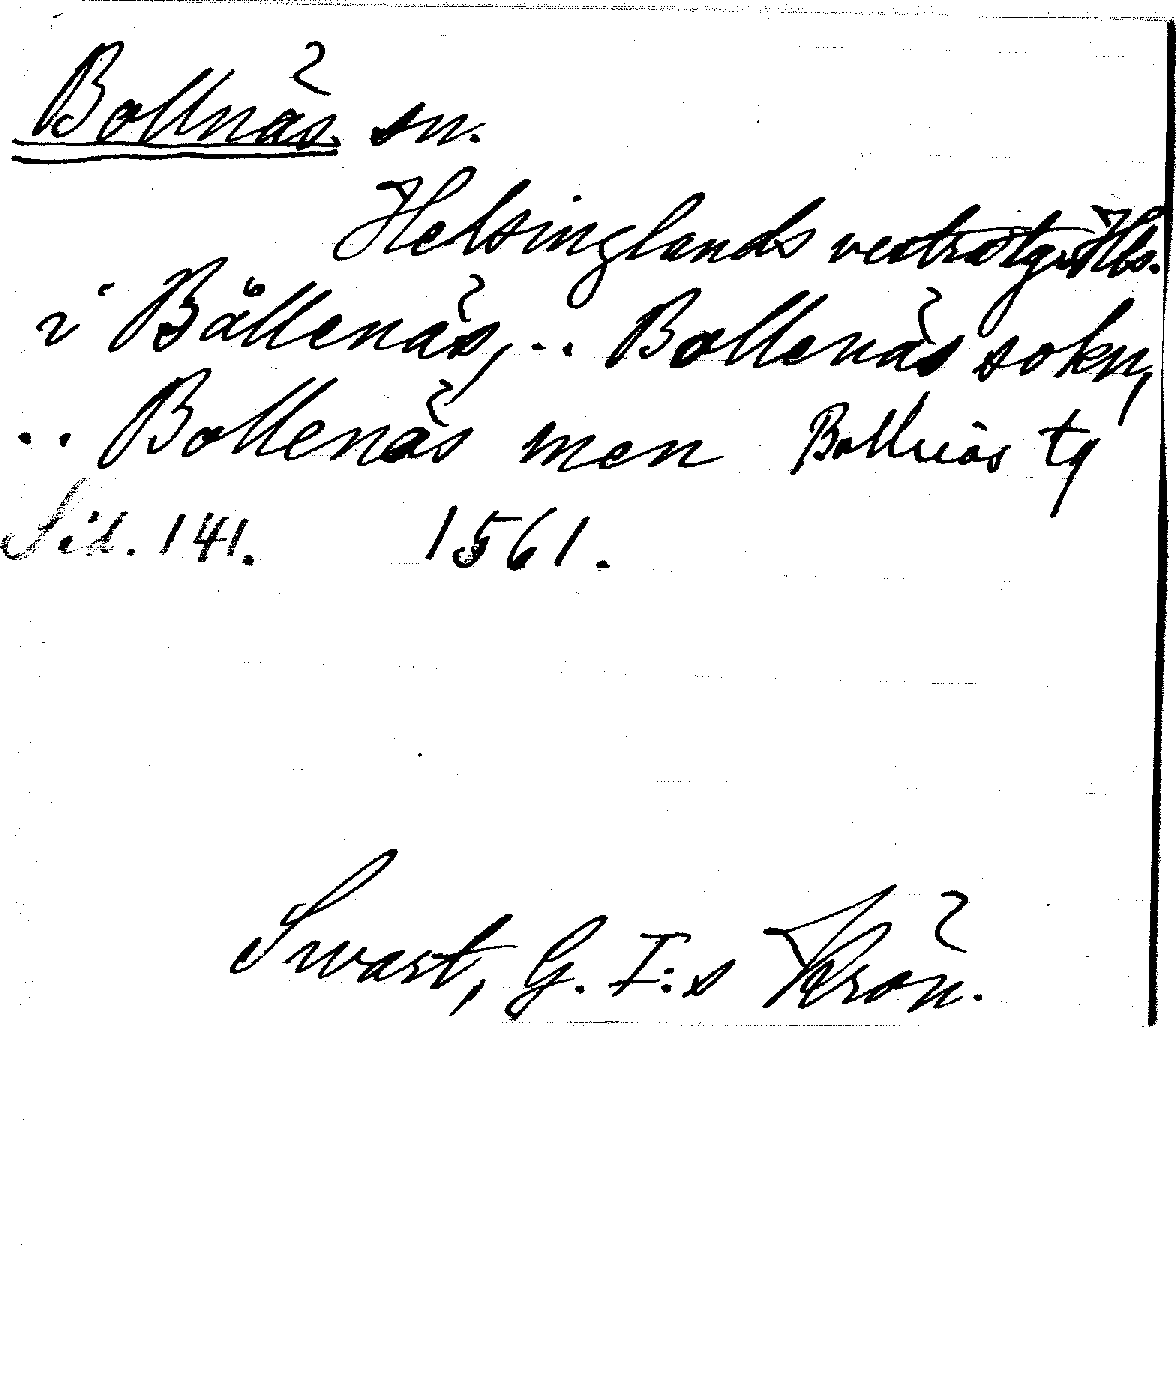 Bollnäs sn.
Helsinglands västra tg. Hls.
i Bållenäs, .. Bollenäs sokn,
.. Bollenäs men Bollnäs tg
Sid. 141. 1561.
Swart, G. I:s Krön.